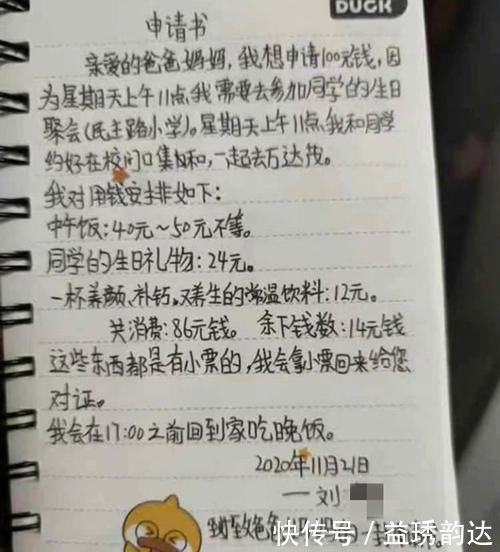 DUCK
申请书
亲爱的爸爸妈妈,我想申请100元钱,因
为星期天上午11点,我需要去参加同学的生日
聚会(民主路小学)。星期天上午11点,我和同学
约好在校门口集合和,一起去万达茂。
我对用钱安排如下:
中午饭:40元～50元不等。
同学的生日礼物:24元。
一杯养颜、补钙,又养生的常温饮料:12元。
共消费:86元钱。 余下钱数:14元钱
这些东西都是有小票的,我会拿小票回来给您
对证。
我会在17:00之前回到家吃晚饭。
2020年11月21日
—刘
快传号 / 益琇韵达